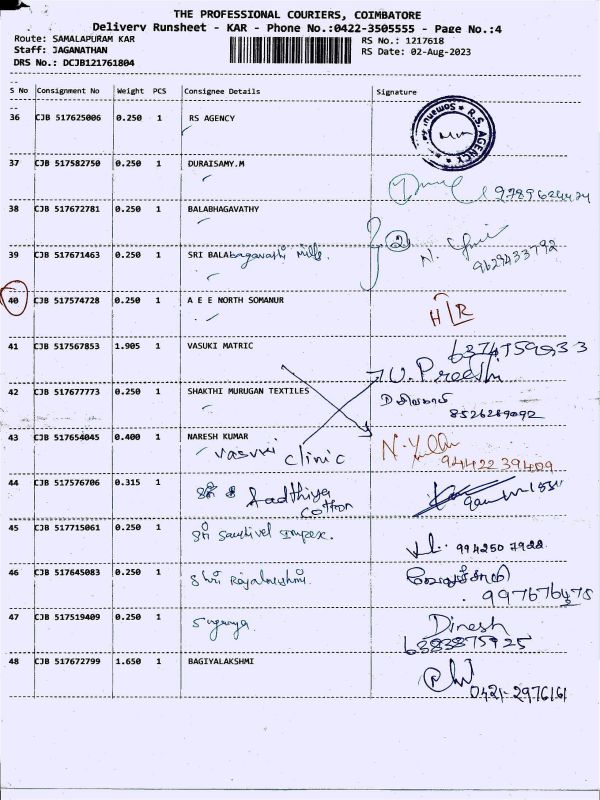 THE PROFESSIONAL COURIERS, COIMBATORE
Delivery Runsheet - KAR - Phone No.:0422-3505555 - Page No.:4
Route: SAMALAPURAM KAR RS No.: 1217618
Staff: JAGANATHAN RS Date: 02-Aug-2023
DRS No.: DCJB121761804
S No Consignment No Weight PCS Consignee Details Signature
36 CJB 517625006 0.250 1 RS AGENCY
R.S. AGENCY
37 CJB 517582750 0.250 1 DURAISAMY.M
38 CJB 517672781 0.250 1 BALABHAGAVATHY
2
39 CJB 517671463 0.250 1 SRI BALAbagavathi Mills.
9629433792
40 CJB 517574728 0.250 1 A E E NORTH SOMANUR
41 CJB 517567853 1.905 1 VASUKI MATRIC
42 CJB 517677773 0.250 1 SHAKTHI MURUGAN TEXTILES
8526289092
43 CJB 517654045 0.400 1 NARESH KUMAR
clinic
94422 39409
44 CJB 517576706 0.315 1
Aadthiya
cotton
45 CJB 517715061 0.250 1
994250 7922
46 CJB 517645083 0.250 1
47 CJB 517519409 0.250 1
Dinesh
6383875925
48 CJB 517672799 1.650 1 BAGIYALAKSHMI
0421-2976161